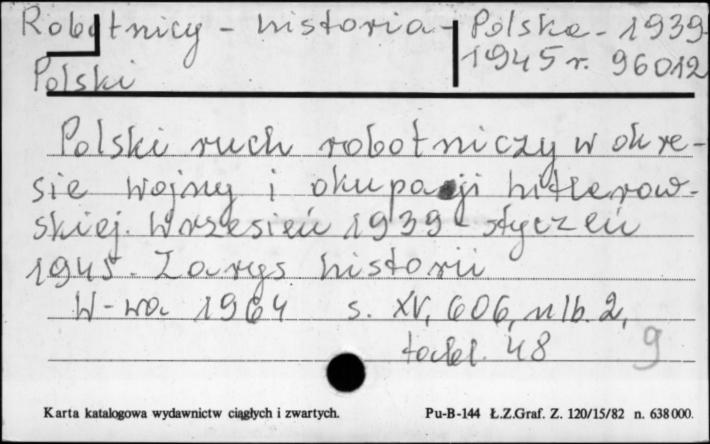 Robotnicy - historia - Polska - 1939-
1945 r. 96012
Polski
Polski ruch robotniczy w okre-
sie wojny i okupacji hitlerow-
skiej. Wrzesień 1939 - styczeń
1945. Zarys historii
W-wa 1964 s. XV, 606, nlb. 2,
tabl. 48 9
Karta katalogowa wydawnictw ciągłych i zwartych. Pu-B-144 Ł.Z.Graf. Z. 120/15/82 n. 638000.